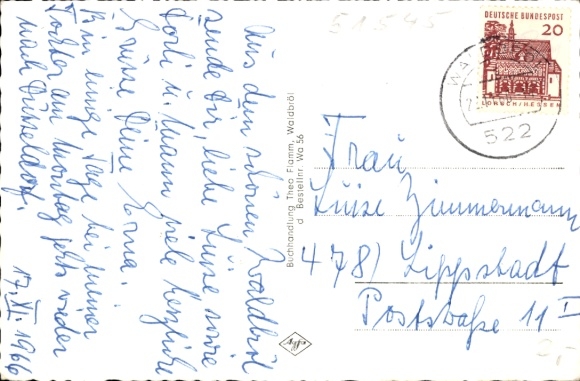 Aus dem schönen Waldbröl
sende Dir, liebe Luise sowie
Dorli u. Mann viele herzliche
Grüsse Deine Erna.
Bin einige Tage bei meiner
Tochter am Montag geht's wieder
nach Düsseldorf.
17. XI. 1966
Buchhandlung Theo Flamm, Waldbröl
d Bestellnr. Wa 56
Agfa
51545
DEUTSCHE BUNDESPOST
20
LORSCH/HESSEN
522
Frau
Luise Zimmermann
478) Lippstadt
Poststraße 11 I